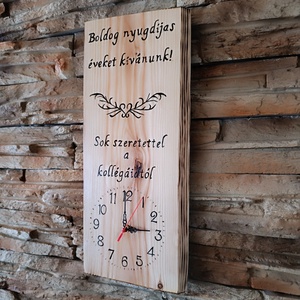 Boldog nyugdíjas
éveket kívánunk!
Sok szeretettel
a
kollégáidtól
12
11 1
10 2
9 3
8 4
7 5
6